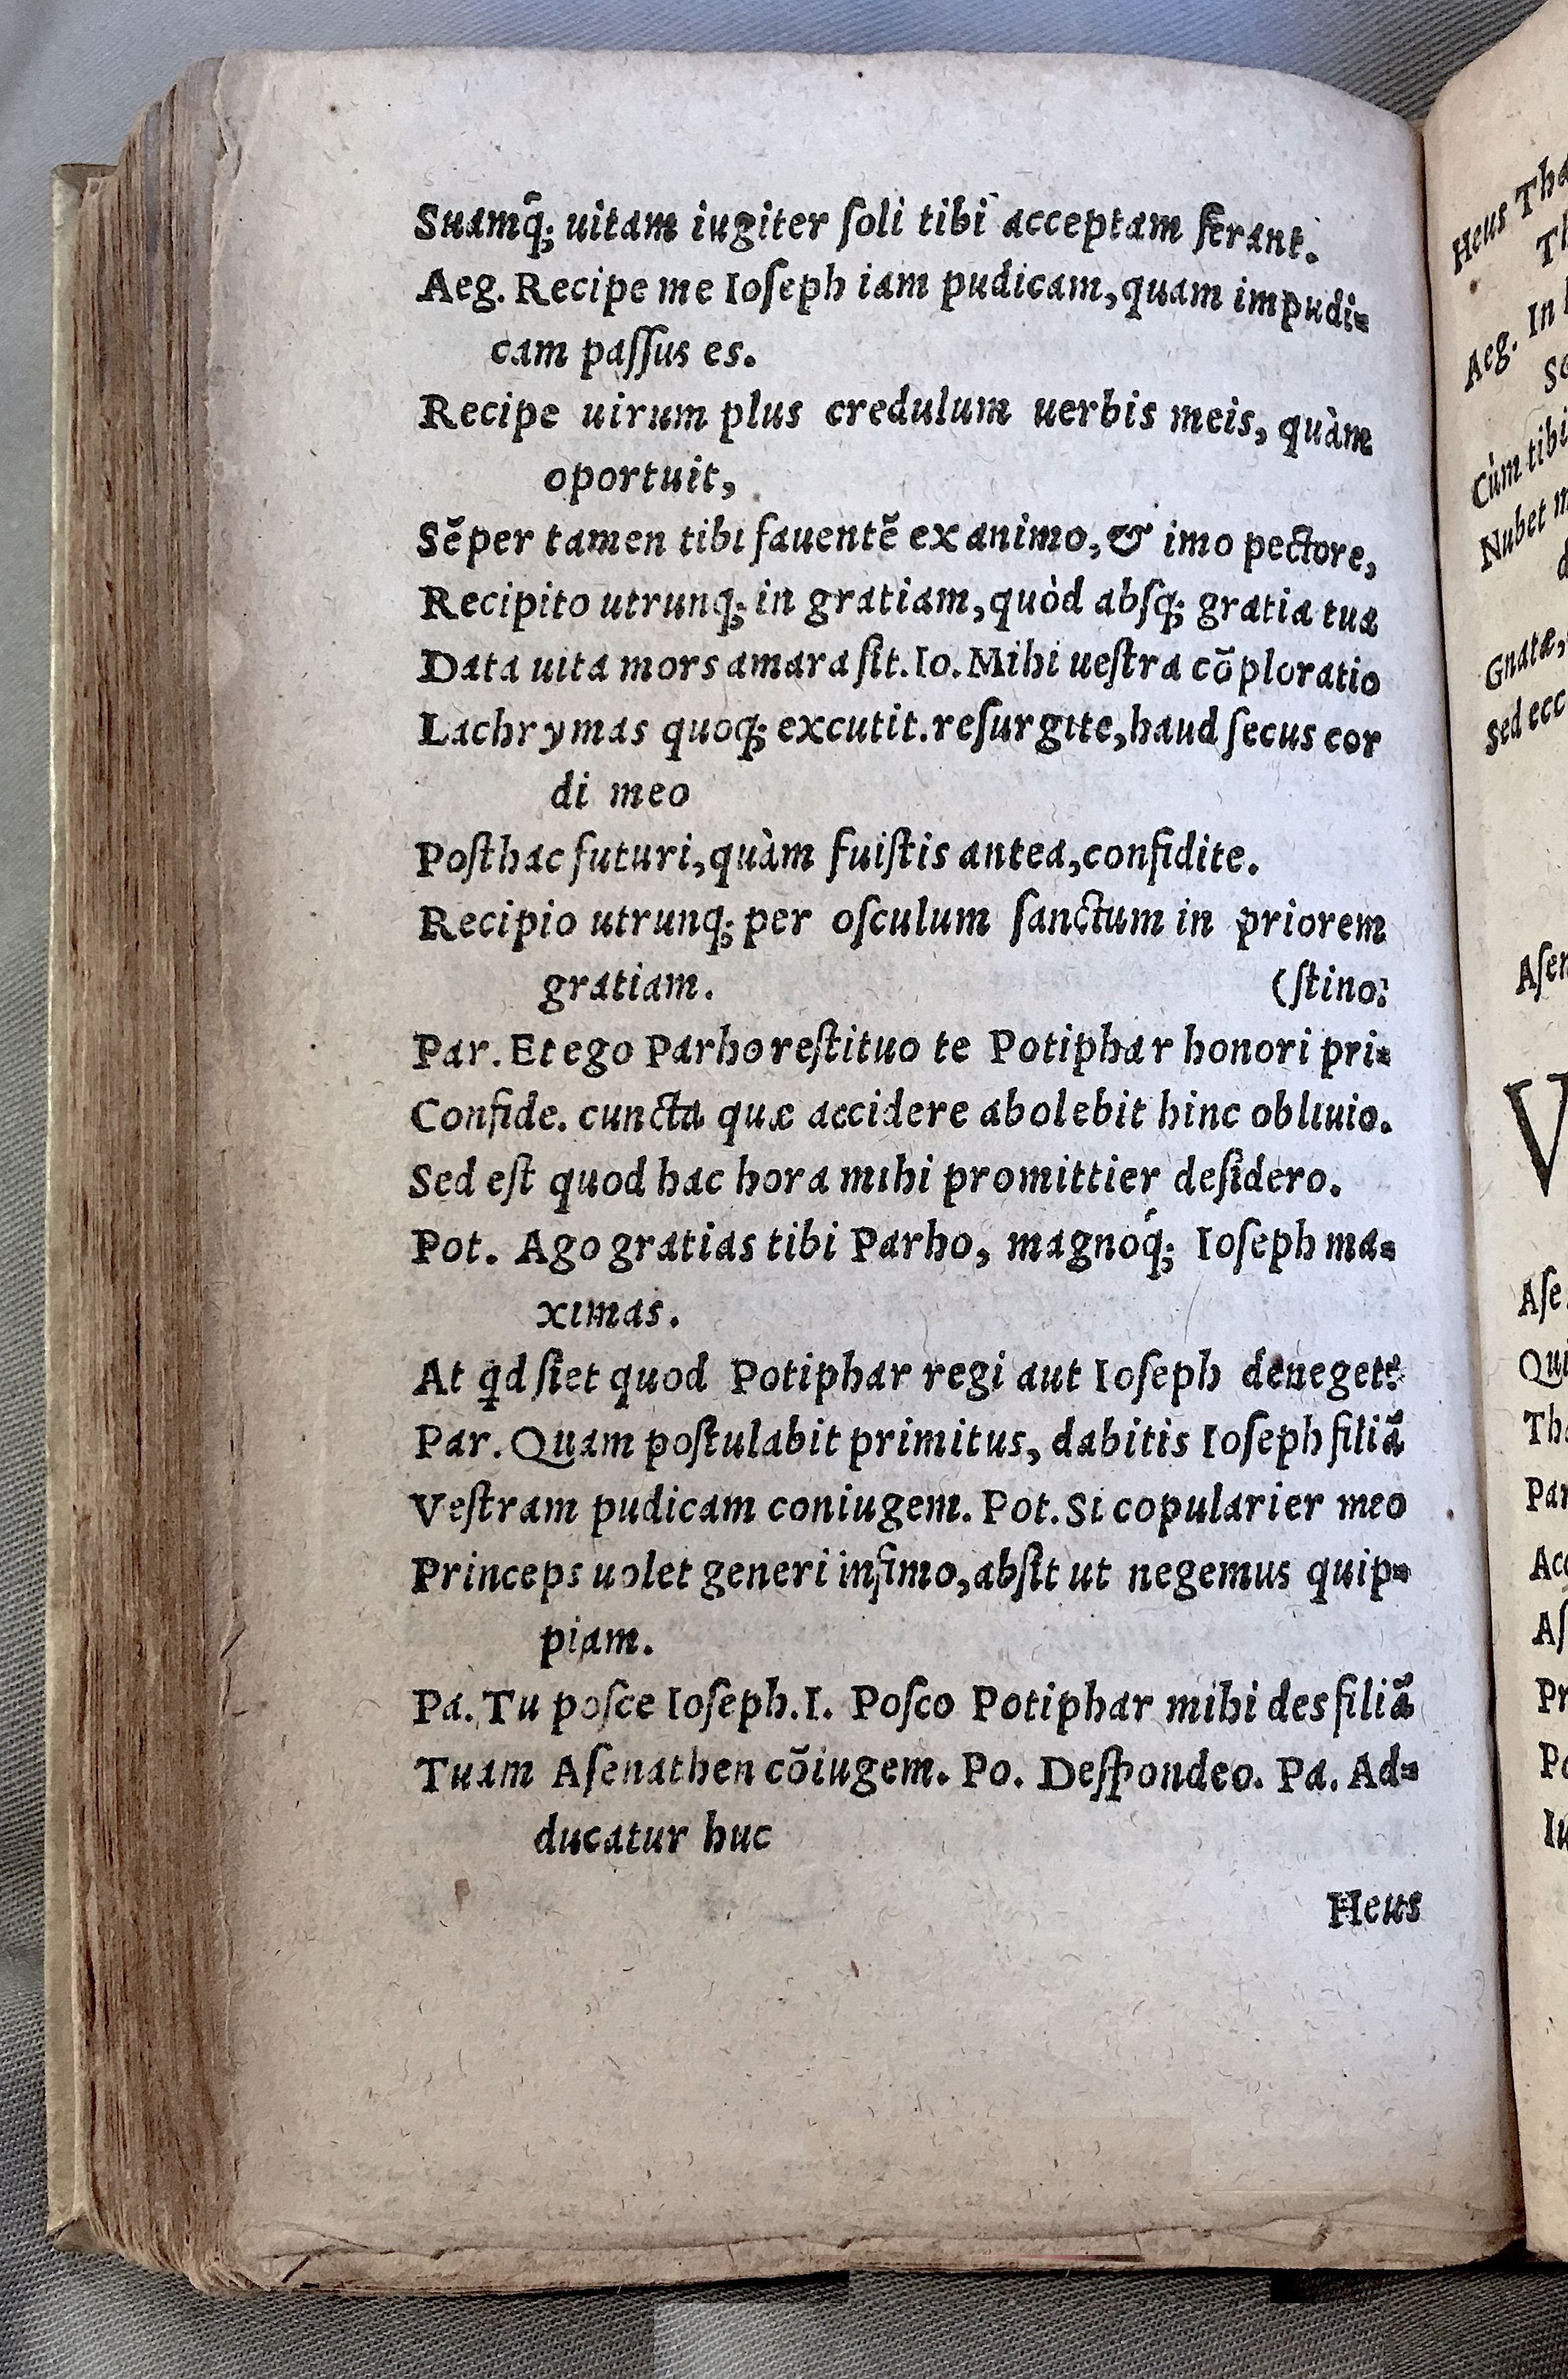 Suamq̃; uitam iugiter ſoli tibi acceptam ferant.
Aeg. Recipe me Ioſeph iam pudicam, quam impudi=
cam paſſus es.
Recipe uirum plus credulum uerbis meis, quàm
oportuit,
Sẽper tamen tibi fauentẽ ex animo, & imo pectore,
Recipito utrunq; in gratiam, quòd abſq; gratia tua
Data uita mors amara ſit. Io. Mihi ueſtra cõploratio
Lachrymas quoq; excutit. reſurgite, haud ſecus cor
di meo
Poſthac futuri, quàm fuiſtis antea, confidite.
Recipio utrunq; per oſculum ſanctum in priorem
gratiam. (ſtino:
Par. Et ego Parho reſtituo te Potiphar honori pri=
Confide. cuncta quæ accidere abolebit hinc obliuio.
Sed eſt quod hac hora mihi promittier deſidero.
Pot. Ago gratias tibi Parho, magnoq́; Ioſeph ma=
ximas.
At qd ſiet quod Potiphar regi aut Ioſeph deneget?
Par. Quam poſtulabit primitus, dabitis Ioſeph filiã
Veſtram pudicam coniugem. Pot. Si copularier meo
Princeps uolet generi infimo, abſit ut negemus quip=
piam.
Pa. Tu poſce Ioſeph. I. Poſco Potiphar mihi des filiã
Tuam Aſenathen cõiugem. Po. Deſpondeo. Pa. Ad=
ducatur huc
Heus
Heus Tha
Th
Aeg. In
Se
Cùm tibi
Nubet m
d
Gnatæ,
Sed ecc
Aſen
V
Aſe.
Qu
Tha
Par
Acc
Aſ
Pr
Po
Iu